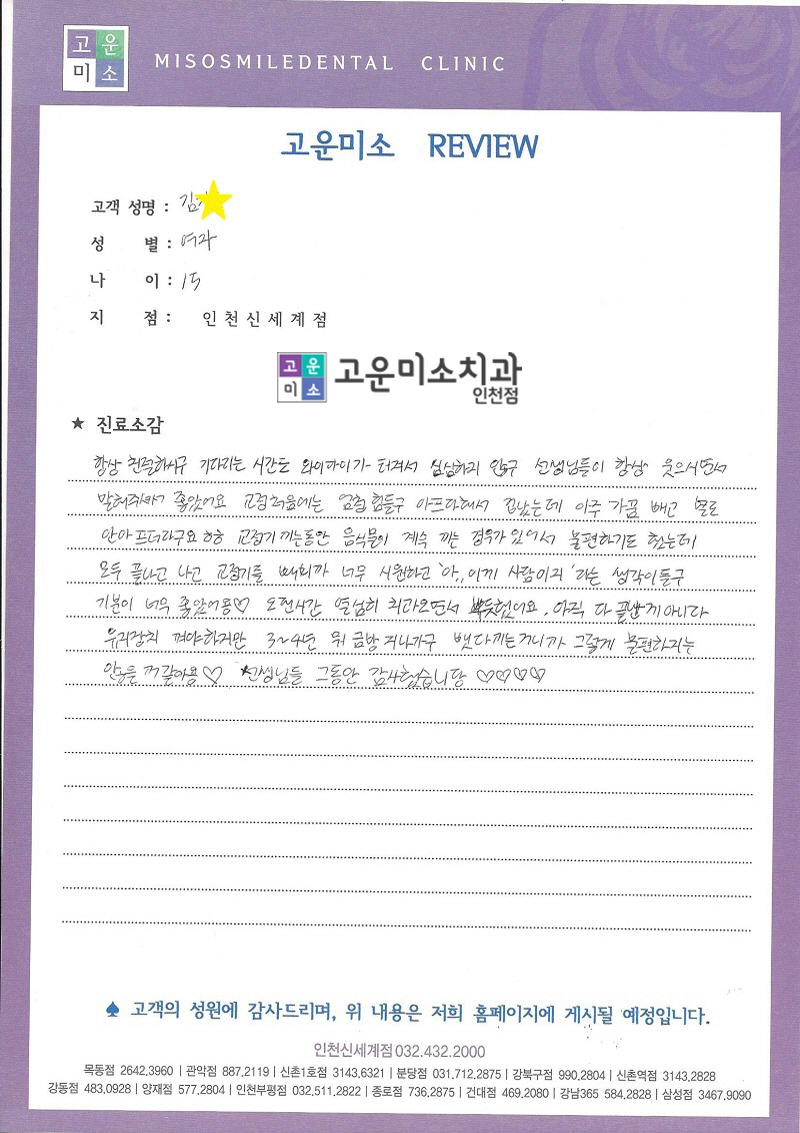 고운
미소
MISOSMILEDENTAL CLINIC
고운미소 REVIEW
고객 성명 : 김
성 별 : 여자
나 이 : 15
지 점 : 인천신세계점
고운
미소
고운미소치과
인천점
★ 진료소감
항상 친절하시구 기다리는 시간도 와이파이가 터져서 심심하지 않구 선생님들이 항상 웃으시면서
맞춰주셔서 좋았어요 교정 처음에는 엄청 힘들구 아프다해서 겁났는데 아주 가끔 빼고 별로
안아프더라구요 ㅎㅎ 교정기 끼는동안 음식물이 계속 끼는 경우가 있어서 불편하기도 했는데
모두 끝나고 나고 교정기를 빼니까 너무 시원하고 '아,, 이게 사람이지' 라는 생각이들구
기분이 너무 좋았어용♡ 오랜시간 열심히 치과오면서 뿌듯했어요. 아직 다 끝난게 아니라
유지장치 껴야하지만 3~4년 뭐 금방 지나가구 뺐다끼는거니까 그렇게 불편하지는
않을 꺼 같아용♡ ★선생님들 그동안 감사했습니당 ♡♡♡♡
♠ 고객의 성원에 감사드리며, 위 내용은 저희 홈페이지에 게시될 예정입니다.
인천신세계점 032.432.2000
목동점 2642.3960 | 관악점 887.2119 | 신촌1호점 3143.6321 | 분당점 031.712.2875 | 강북구점 990.2804 | 신촌역점 3143.2828
강동점 483.0928 | 양재점 577.2804 | 인천부평점 032.511.2822 | 종로점 736.2875 | 건대점 469.2080 | 강남365 584.2828 | 삼성점 3467.9090